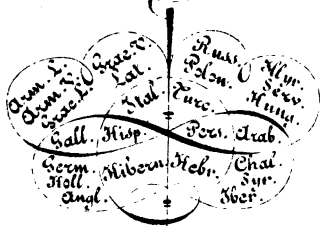 Arm. L.
Arm. V.
Grae. L.
Grae. V.
Lat.
Russ.
Polon.
Illyr.
Serv.
Hung.
Ital.
Turc.
Gall.
Hisp.
Pers.
Arab.
Germ.
Holl.
Angl.
Hibern.
Hebr.
Chal.
Syr.
Iber.